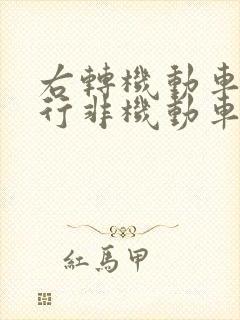 右轉機動車
行非機動車
紅馬甲